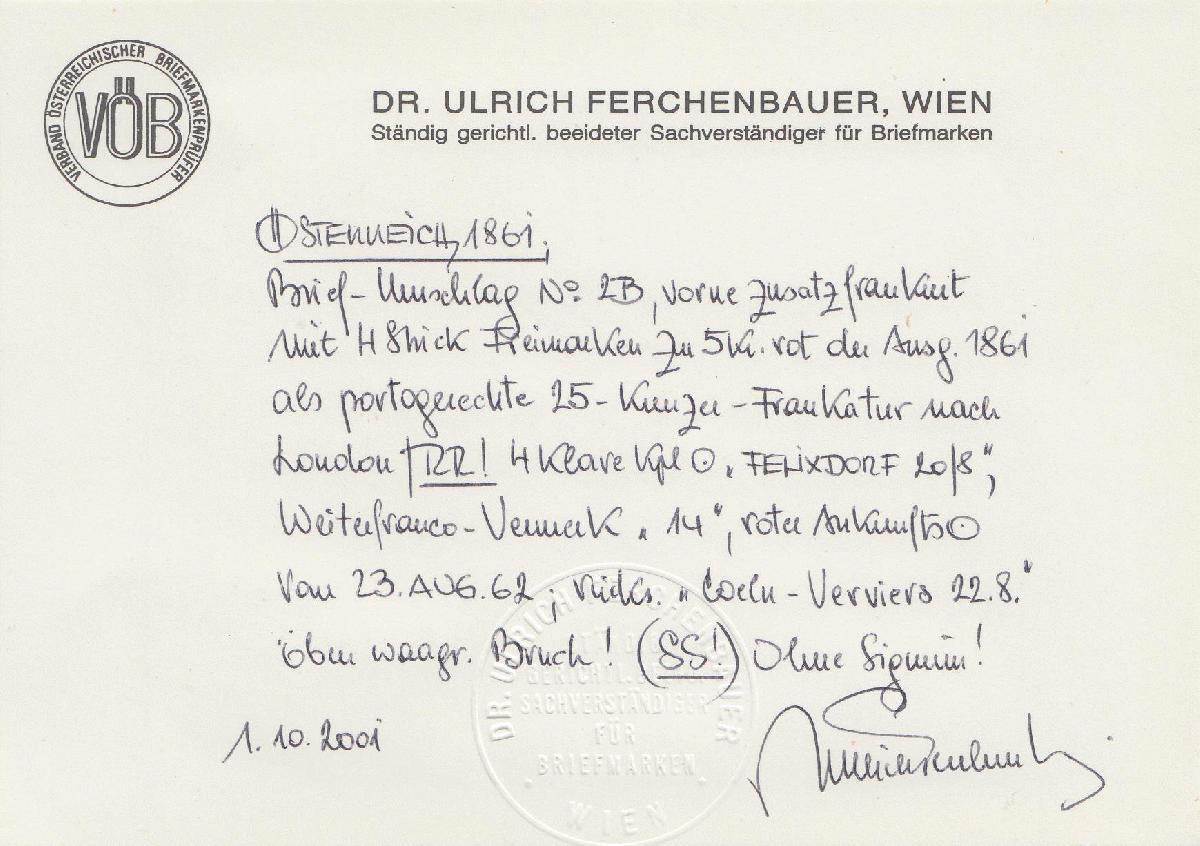 VERBAND ÖSTERREICHISCHER BRIEFMARKENPRÜFER
VÖB
DR. ULRICH FERCHENBAUER, WIEN
Ständig gerichtl. beeideter Sachverständiger für Briefmarken
ÖSTERREICH, 1861,
Brief-Umschlag No 2B, vorne zusatzfrankiert
mit 4 Stück Freimarken zu 5 Kr. rot der Ausg. 1861
als portogerechte 25-Kreuzer-Frankatur nach
London, RR! 4 klare Kpl ⊙ „FELIXDORF 20/8",
Weiterfranco-Vermerk „14", roter Ankunfts⊙
vom 23.AUG.62, rücks. „Coeln - Verviers 22.8."
Oben waagr. Bruch! (SS!) Ohne Signum!
1.10.2001
DR. ULRICH FERCHENBAUER
GERICHTL.
SACHVERSTÄNDIGER
FÜR
BRIEFMARKEN
WIEN